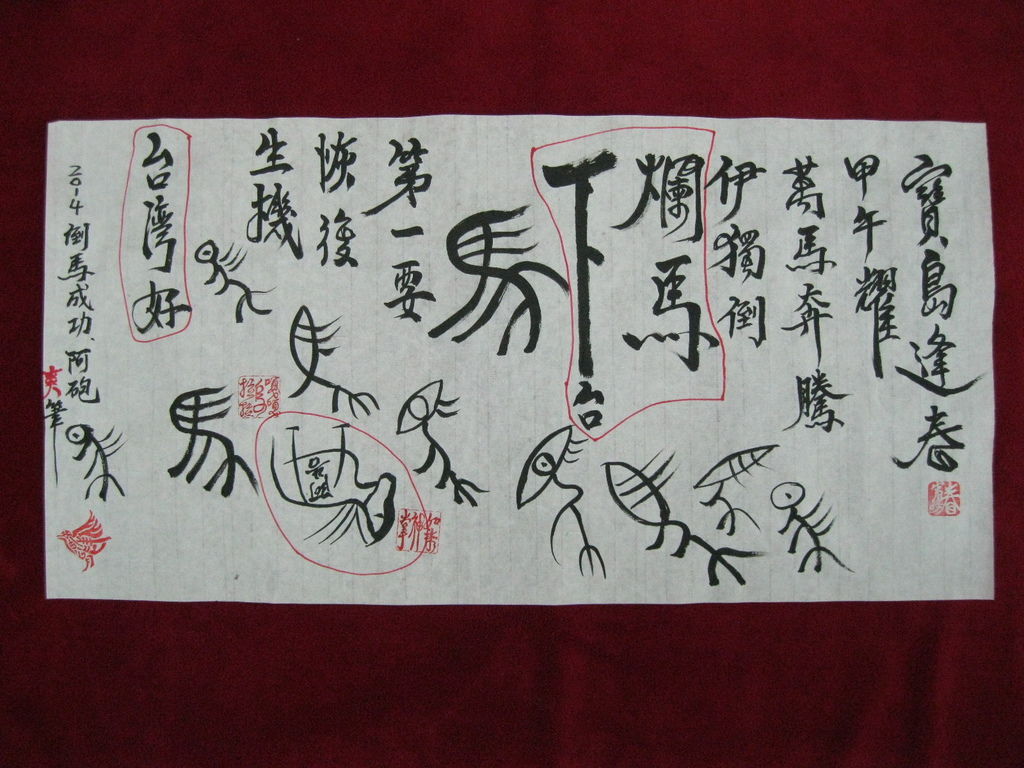 寶島逢春
甲午耀
萬馬奔騰
伊獨倒
爛馬
下台
馬
第一要
恢復
生機
台灣好
2014倒馬成功、阿砲
爽筆
馬